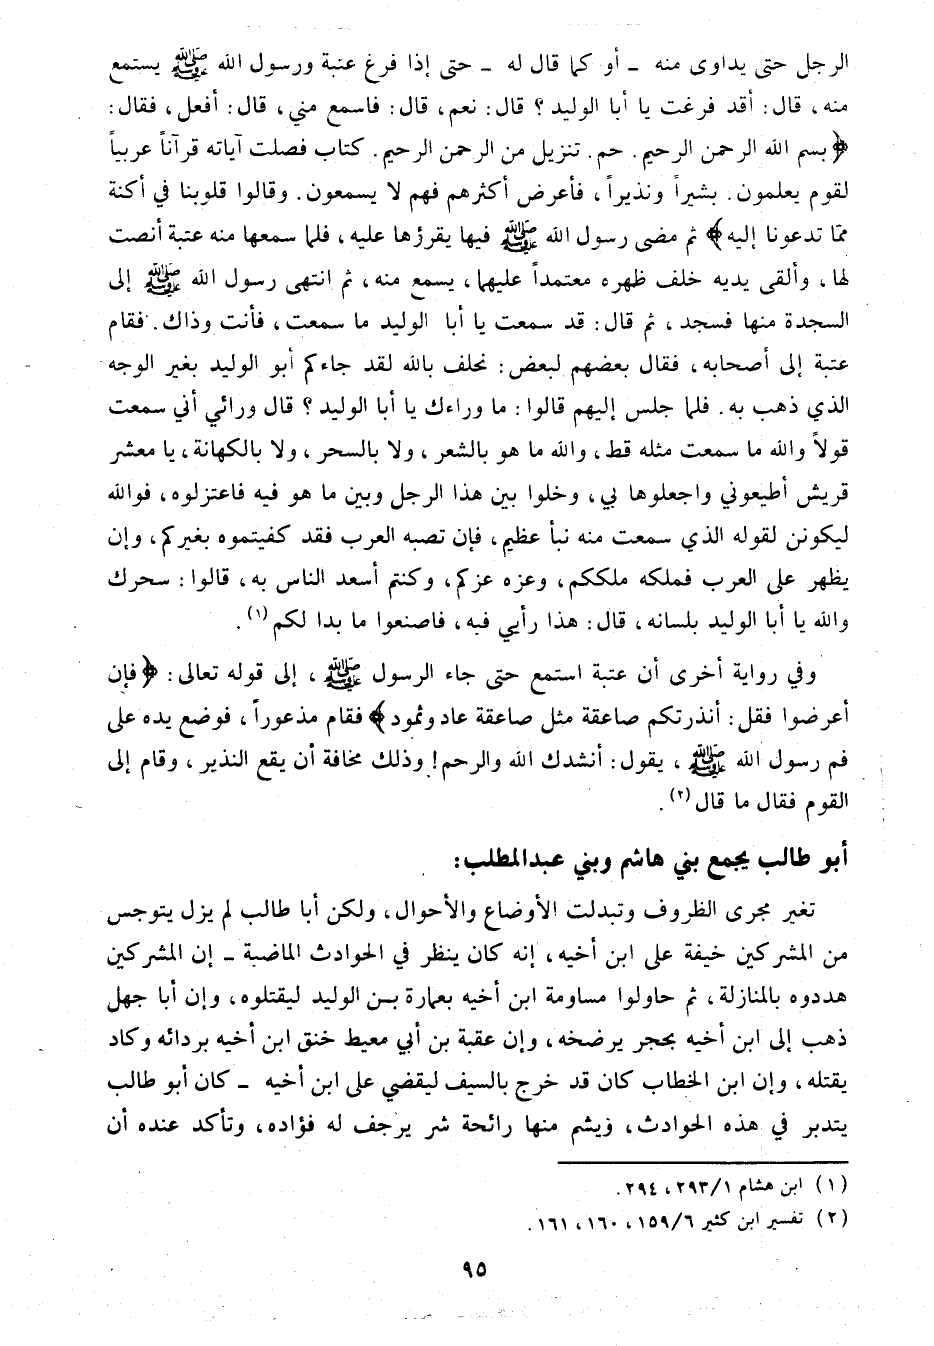 الرجل حتى يداوى منه ـ أو كما قال له ـ حتى إذا فرغ عتبة ورسول الله ﷺ يستمع
منه، قال: أقد فرغت يا أبا الوليد؟ قال: نعم، قال: فاسمع مني، قال: أفعل، فقال:
﴿بسم الله الرحمن الرحيم. حم. تنزيل من الرحمن الرحيم. كتاب فصلت آياته قرآناً عربياً
لقوم يعلمون. بشيراً ونذيراً، فأعرض أكثرهم فهم لا يسمعون. وقالوا قلوبنا في أكنة
ممّا تدعونا إليه﴾ ثم مضى رسول الله ﷺ فيها يقرؤها عليه، فلما سمعها منه عتبة أنصت
لها، وألقى يديه خلف ظهره معتمداً عليهما، يسمع منه، ثم انتهى رسول الله ﷺ إلى
السجدة منها فسجد، ثم قال: قد سمعت يا أبا الوليد ما سمعت، فأنت وذاك. فقام
عتبة إلى أصحابه، فقال بعضهم لبعض: نحلف بالله لقد جاءكم أبو الوليد بغير الوجه
الذي ذهب به. فلما جلس إليهم قالوا: ما وراءك يا أبا الوليد؟ قال ورائي أني سمعت
قولاً والله ما سمعت مثله قط، والله ما هو بالشعر، ولا بالسحر، ولا بالكهانة، يا معشر
قريش أطيعوني واجعلوها بي، وخلوا بين هذا الرجل وبين ما هو فيه فاعتزلوه، فوالله
ليكونن لقوله الذي سمعت منه نبأ عظيم، فإن تصبه العرب فقد كفيتموه بغيركم، وإن
يظهر على العرب فملكه ملككم، وعزه عزكم، وكنتم أسعد الناس به، قالوا: سحرك
والله يا أبا الوليد بلسانه، قال: هذا رأيي فيه، فاصنعوا ما بدا لكم(١).
وفي رواية أخرى أن عتبة استمع حتى جاء الرسول ﷺ، إلى قوله تعالى: ﴿فإن
أعرضوا فقل: أنذرتكم صاعقة مثل صاعقة عاد وثمود﴾ فقام مذعوراً، فوضع يده على
فم رسول الله ﷺ، يقول: أنشدك الله والرحم! وذلك مخافة أن يقع النذير، وقام إلى
القوم فقال ما قال(٢).
أبو طالب يجمع بني هاشم وبني عبدالمطلب:
تغير مجرى الظروف وتبدلت الأوضاع والأحوال، ولكن أبا طالب لم يزل يتوجس
من المشركين خيفة على ابن أخيه، إنه كان ينظر في الحوادث الماضية ـ إن المشركين
هددوه بالمنازلة، ثم حاولوا مساومة ابن أخيه بعمارة بن الوليد ليقتلوه، وإن أبا جهل
ذهب إلى ابن أخيه بحجر يرضخه، وإن عقبة بن أبي معيط خنق ابن أخيه بردائه وكاد
يقتله، وإن ابن الخطاب كان قد خرج بالسيف ليقضي على ابن أخيه ـ كان أبو طالب
يتدبر في هذه الحوادث، ويشم منها رائحة شر يرجف له فؤاده، وتأكد عنده أن
(١) ابن هشام ٢٩٣/١، ٢٩٤.
(٢) تفسير ابن كثير ١٥٩/٦، ١٦٠، ١٦١.
٩٥